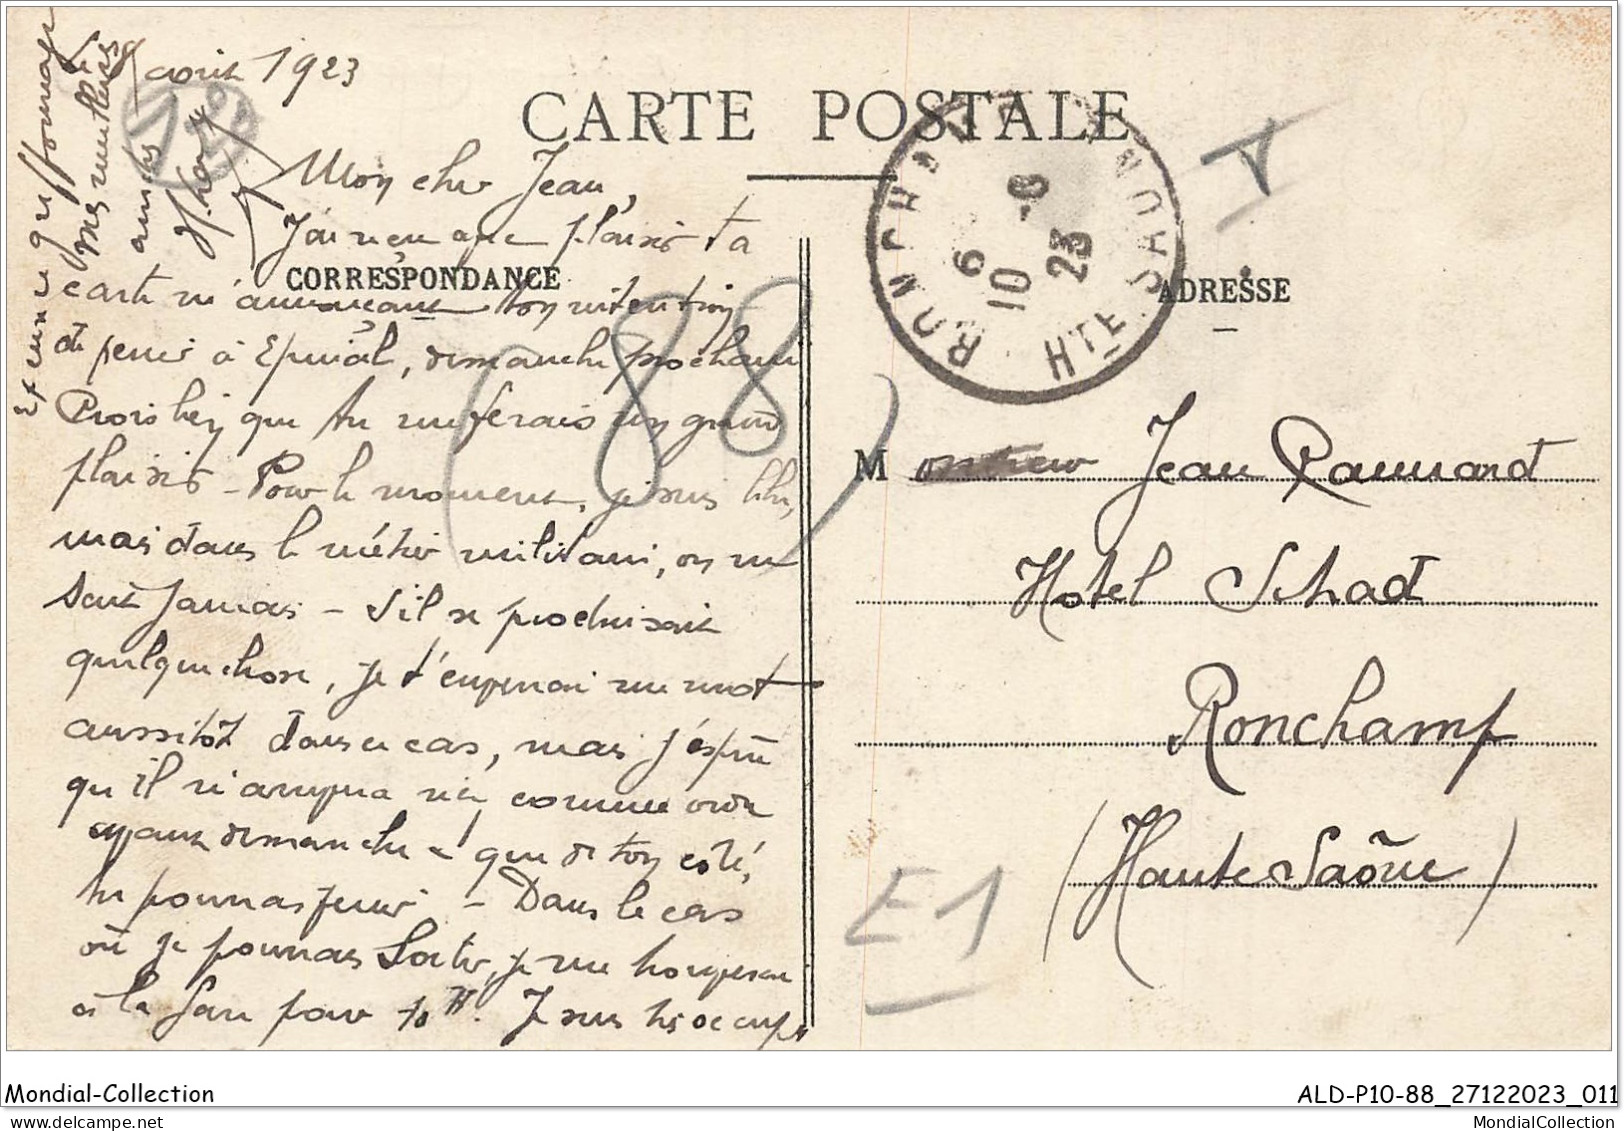 9 avril 1923
CARTE POSTALE
Mon cher Jean,
J'ai reçu avec plaisir ta
CORRESPONDANCE
carte m'annonçant ton intention
de venir à Epinal, dimanche prochain
Crois bien que tu me ferais un grand
plaisir – Pour le moment, je suis libre,
mais dans le métier militaire, on ne
sait jamais – S'il se produisait
quelque chose, je t'enverrai un mot
aussitôt dans ce cas, mais j'espère
qu'il n'arrivera rien comme ordre
avant dimanche et que de ton côté,
tu pourras venir – Dans le cas
où je pourrais Sortir, je me trouverai
à la Gare pour 10 H. Je suis très occupé
Excuse griffonnage
Mes meilleures
amitiés
RONCHAMP
6 10 -6 23
HTE SAONE
T
ADRESSE
M onsieur Jean Ramand
Hotel Schad
Ronchamp
(Haute Saône)
(88)
E1
Mondial-Collection
ALD-P10-88_27122023_011
www.mondialcollection.delcampe.com
MondialCollection